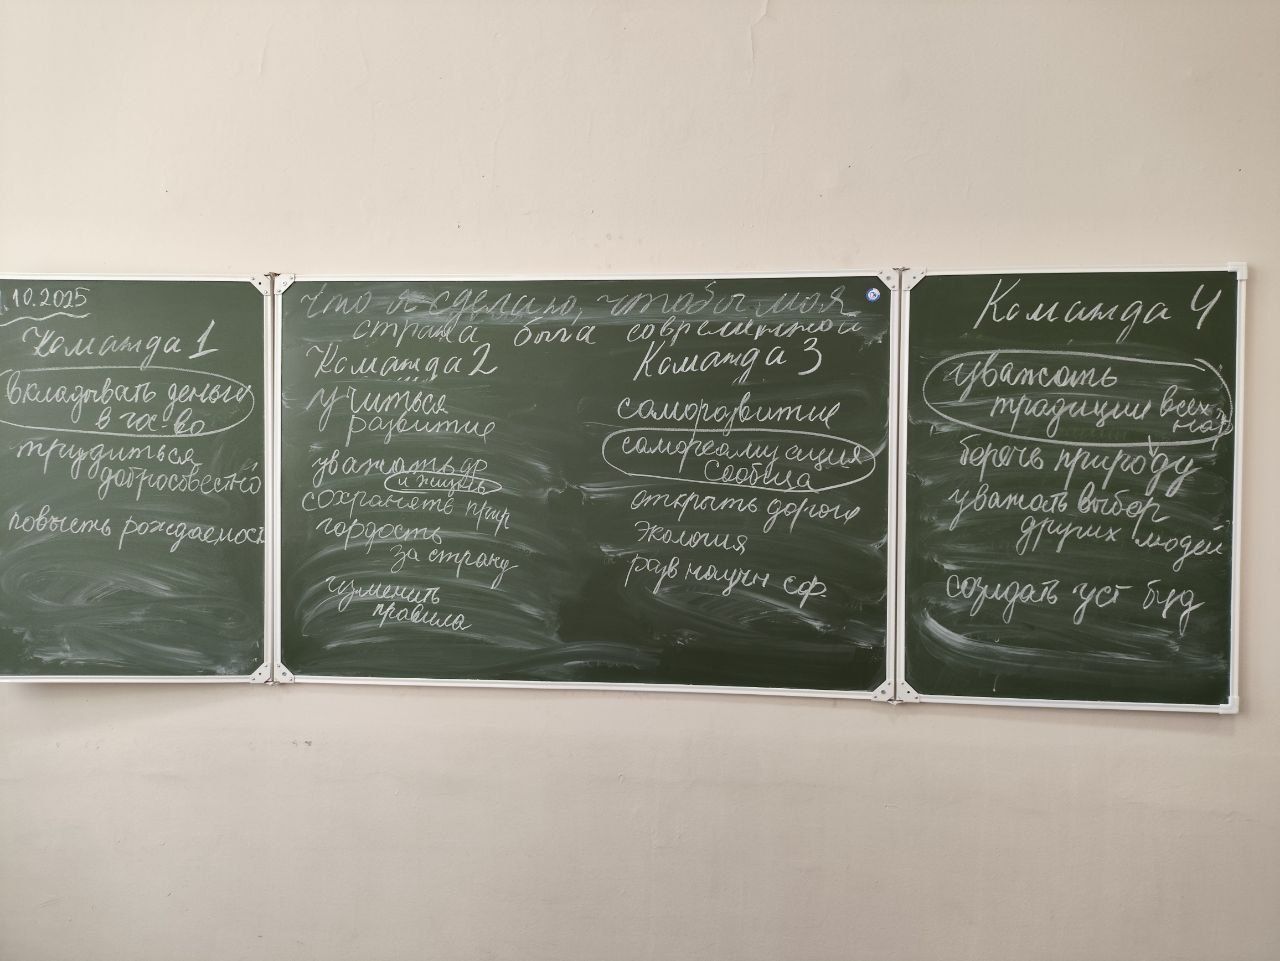 .10.2025
Команда 1
вкладывать деньги
в гос-во
трудиться
добросовестно
повысть рождаемость
Что я сделаю, чтобы моя
страна была современной
Команда 2
учиться
развитие
уважать др
и жизнь
сохранять прир
гордость
за страну
изменить
правила
Команда 3
саморазвитие
самореализация
Сообща
открыть дороги
Экология
разв научн сф.
Команда 4
уважать
традиции всех
нар
беречь природу
уважать выбор
других людей
создать уст буд